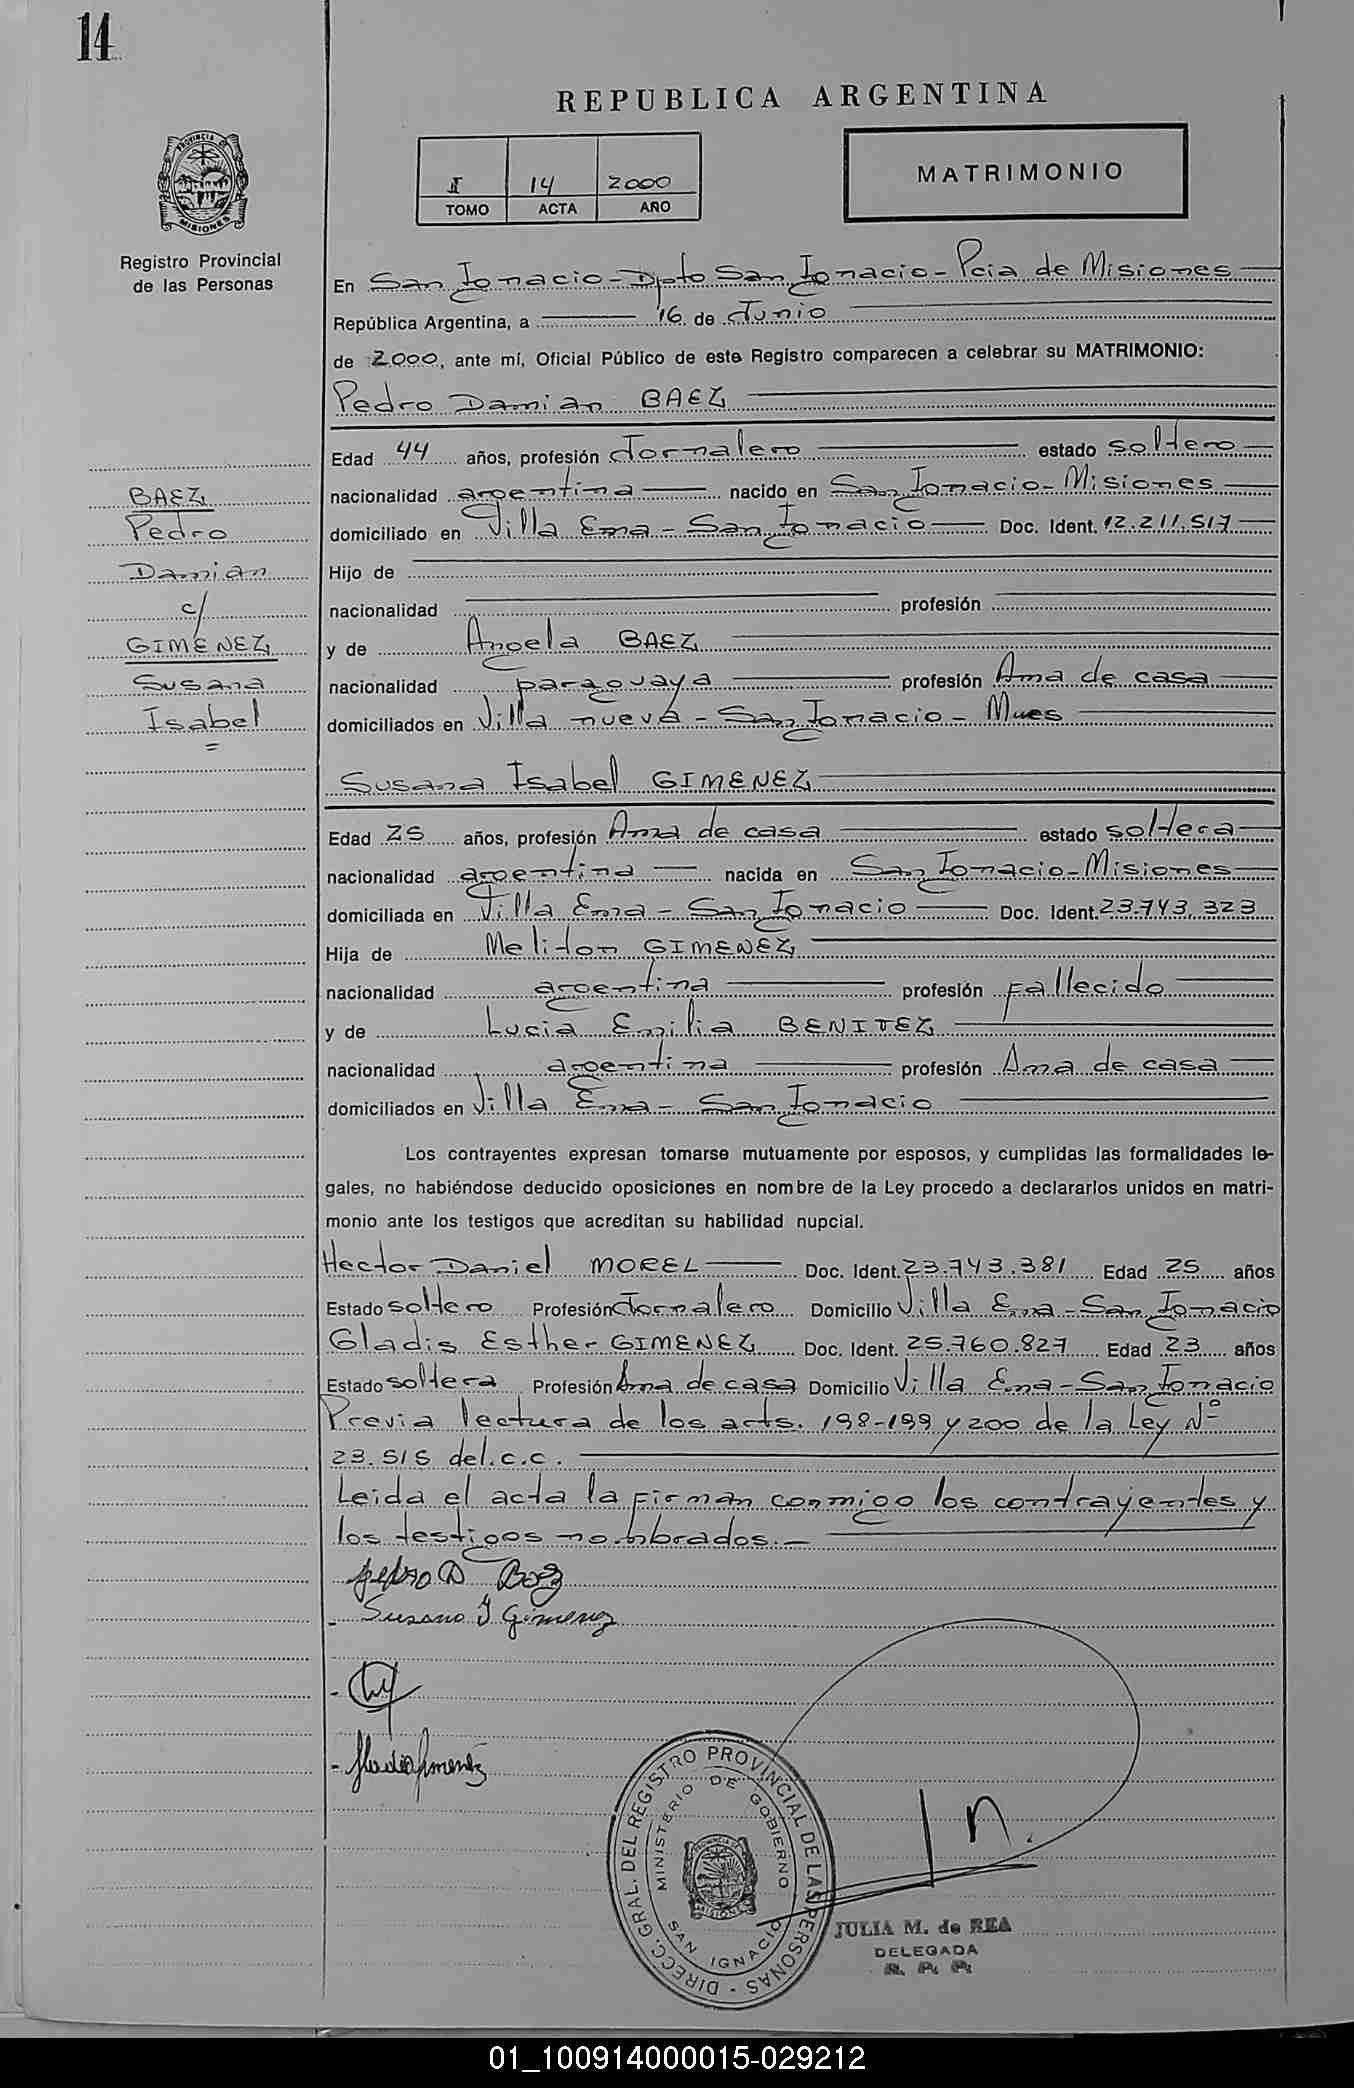 14
REPUBLICA ARGENTINA
PROVINCIA DE
MISIONES
Registro Provincial
de las Personas
I 14 2000
TOMO ACTA AÑO
MATRIMONIO
En San Ignacio - Dpto San Ignacio - Pcia de Misiones
República Argentina, a 16 de Junio
de 2000, ante mí, Oficial Público de este Registro comparecen a celebrar su MATRIMONIO:
Pedro Damian BAEZ
Edad 44 años, profesión Jornalero estado soltero
nacionalidad argentina nacido en San Ignacio - Misiones
domiciliado en Villa Ema - San Ignacio Doc. Ident. 12.211.517
Hijo de
nacionalidad profesión
y de Angela BAEZ
nacionalidad paraguaya profesión Ama de casa
domiciliados en Villa nueva - San Ignacio - Mnes
BAEZ
Pedro
Damian
c/
GIMENEZ
Susana
Isabel
=
Susana Isabel GIMENEZ
Edad 25 años, profesión Ama de casa estado soltera
nacionalidad argentina nacida en San Ignacio - Misiones
domiciliada en Villa Ema - San Ignacio Doc. Ident. 23.743.323
Hija de Meliton GIMENEZ
nacionalidad argentina profesión fallecido
y de Lucia Emilia BENITEZ
nacionalidad argentina profesión Ama de casa
domiciliados en Villa Ema - San Ignacio
Los contrayentes expresan tomarse mutuamente por esposos, y cumplidas las formalidades le-
gales, no habiéndose deducido oposiciones en nombre de la Ley procedo a declararlos unidos en matri-
monio ante los testigos que acreditan su habilidad nupcial.
Hector Daniel MOREL Doc. Ident. 23.743.381 Edad 25 años
Estado soltero Profesión Jornalero Domicilio Villa Ema - San Ignacio
Gladis Esther GIMENEZ Doc. Ident. 25.760.827 Edad 23 años
Estado soltera Profesión Ama de casa Domicilio Villa Ema - San Ignacio
Previa lectura de los arts. 198-199 y 200 de la Ley Nº
23.515 del.c.c.
Leida el acta la firman conmigo los contrayentes y
los testigos nombrados.-
pedro D Baez
Susana I Gimenez
DIRECC. GRAL. DEL REGISTRO PROVINCIAL DE LAS PERSONAS
MINISTERIO DE GOBIERNO
SAN IGNACIO
JULIA M. de REA
DELEGADA
R. P. P.
01_100914000015-029212